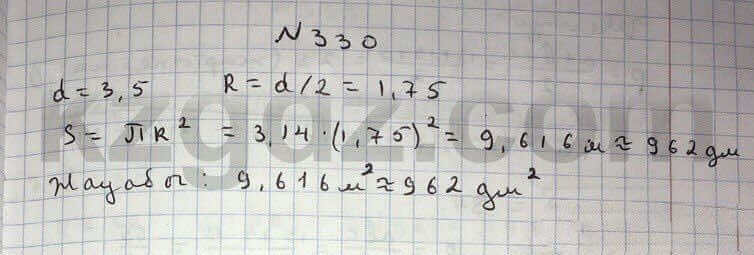 N 330
d = 3,5 R = d/2 = 1,75
S = ПR² = 3,14·(1,75)² = 9,616м ≈ 962дм
Жауабы: 9,616м² ≈ 962 дм²
kzgdz.com